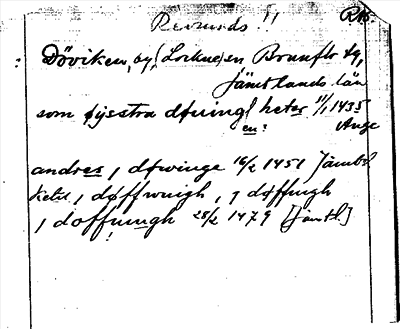 Revsunds !! R.45.
Döviken, by, (Lockne) sn Brunflo tg,
Jämtlands län
som øysstra døuing[ heter 1/1 1435
en? Ange
andres, j døwinge 16/2 1451 Jämtl.
Ketil, j døffwuigh, j døffuigh
j doffuungh 25/2 1479 [Jämtl.]